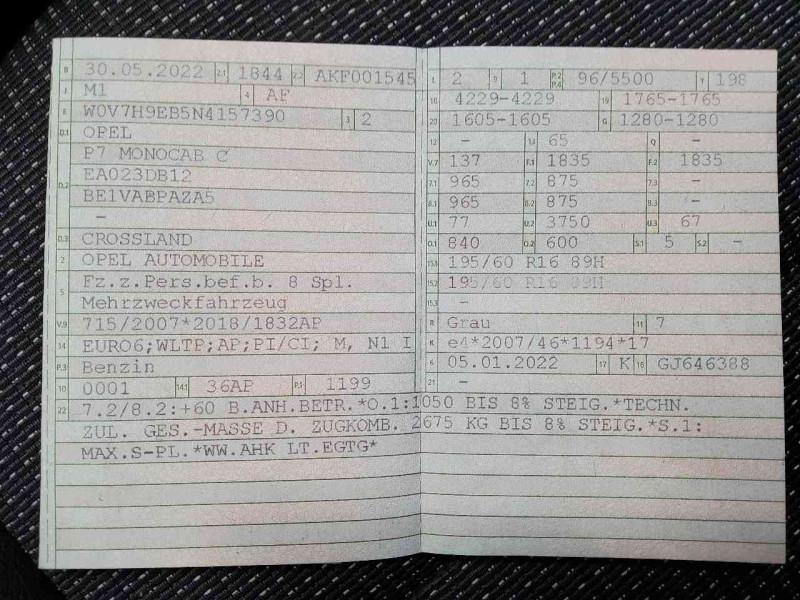 B 30.05.2022 2.1 1844 2.2 AKF001545
J M1 4 AF
E W0V7H9EB5N4157390 3 2
D.1 OPEL
P7 MONOCAB C
D.2 EA023DB12
BE1VABPAZA5
–
D.3 CROSSLAND
2 OPEL AUTOMOBILE
5 Fz.z.Pers.bef.b. 8 Spl.
Mehrzweckfahrzeug
V.9 715/2007*2018/1832AP
14 EURO6;WLTP;AP;PI/CI; M, N1 I
P.3 Benzin
10 0001 14.1 36AP P.1 1199
L 2 9 1 P.2 P.4 96/5500 T 198
18 4229-4229 19 1765-1765
20 1605-1605 G 1280-1280
12 – 13 65 Q –
V.7 137 F.1 1835 F.2 1835
7.1 965 7.2 875 7.3 –
8.1 965 8.2 875 8.3 –
U.1 77 U.2 3750 U.3 67
O.1 840 O.2 600 S.1 5 S.2 –
15.1 195/60 R16 89H
15.2 195/60 R16 89H
15.3 –
R Grau 11 7
K e4*2007/46*1194*17
6 05.01.2022 17 K 16 GJ646388
21 –
22 7.2/8.2:+60 B.ANH.BETR.*O.1:1050 BIS 8% STEIG.*TECHN.
ZUL. GES.-MASSE D. ZUGKOMB. 2675 KG BIS 8% STEIG.*S.1:
MAX.S-PL.*WW.AHK LT.EGTG*